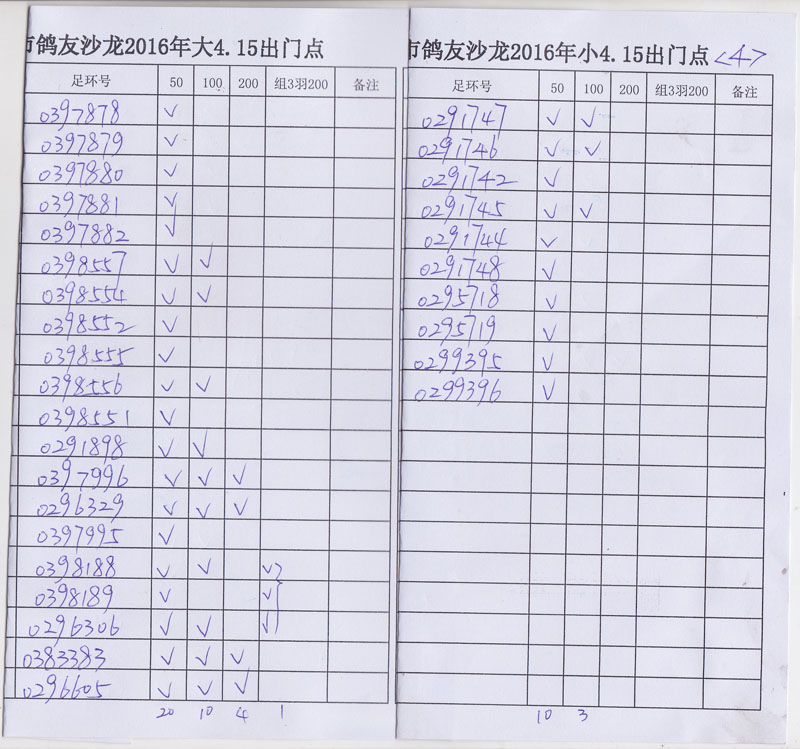 市鸽友沙龙2016年大4.15出门点
足环号 50 100 200 组3羽200 备注
0397878 √
0397879 √
0397880 √
0397881 √
0397882 √
0398557 √ √
0398554 √ √
0398552 √
0398555 √
0398556 √ √
0398551 √
0291898 √ √
0397996 √ √ √
0296329 √ √ √
0397995 √
0398188 √ √ √
0398189 √ √
0296306 √ √ √
0383383 √ √ √
0296605 √ √ √
20 10 4 1
市鸽友沙龙2016年小4.15出门点 <4>
足环号 50 100 200 组3羽200 备注
0291747 √ √
0291746 √ √
0291742 √
0291745 √ √
0291744 √
0291748 √
0295718 √
0295719 √
0299395 √
0299396 √
10 3